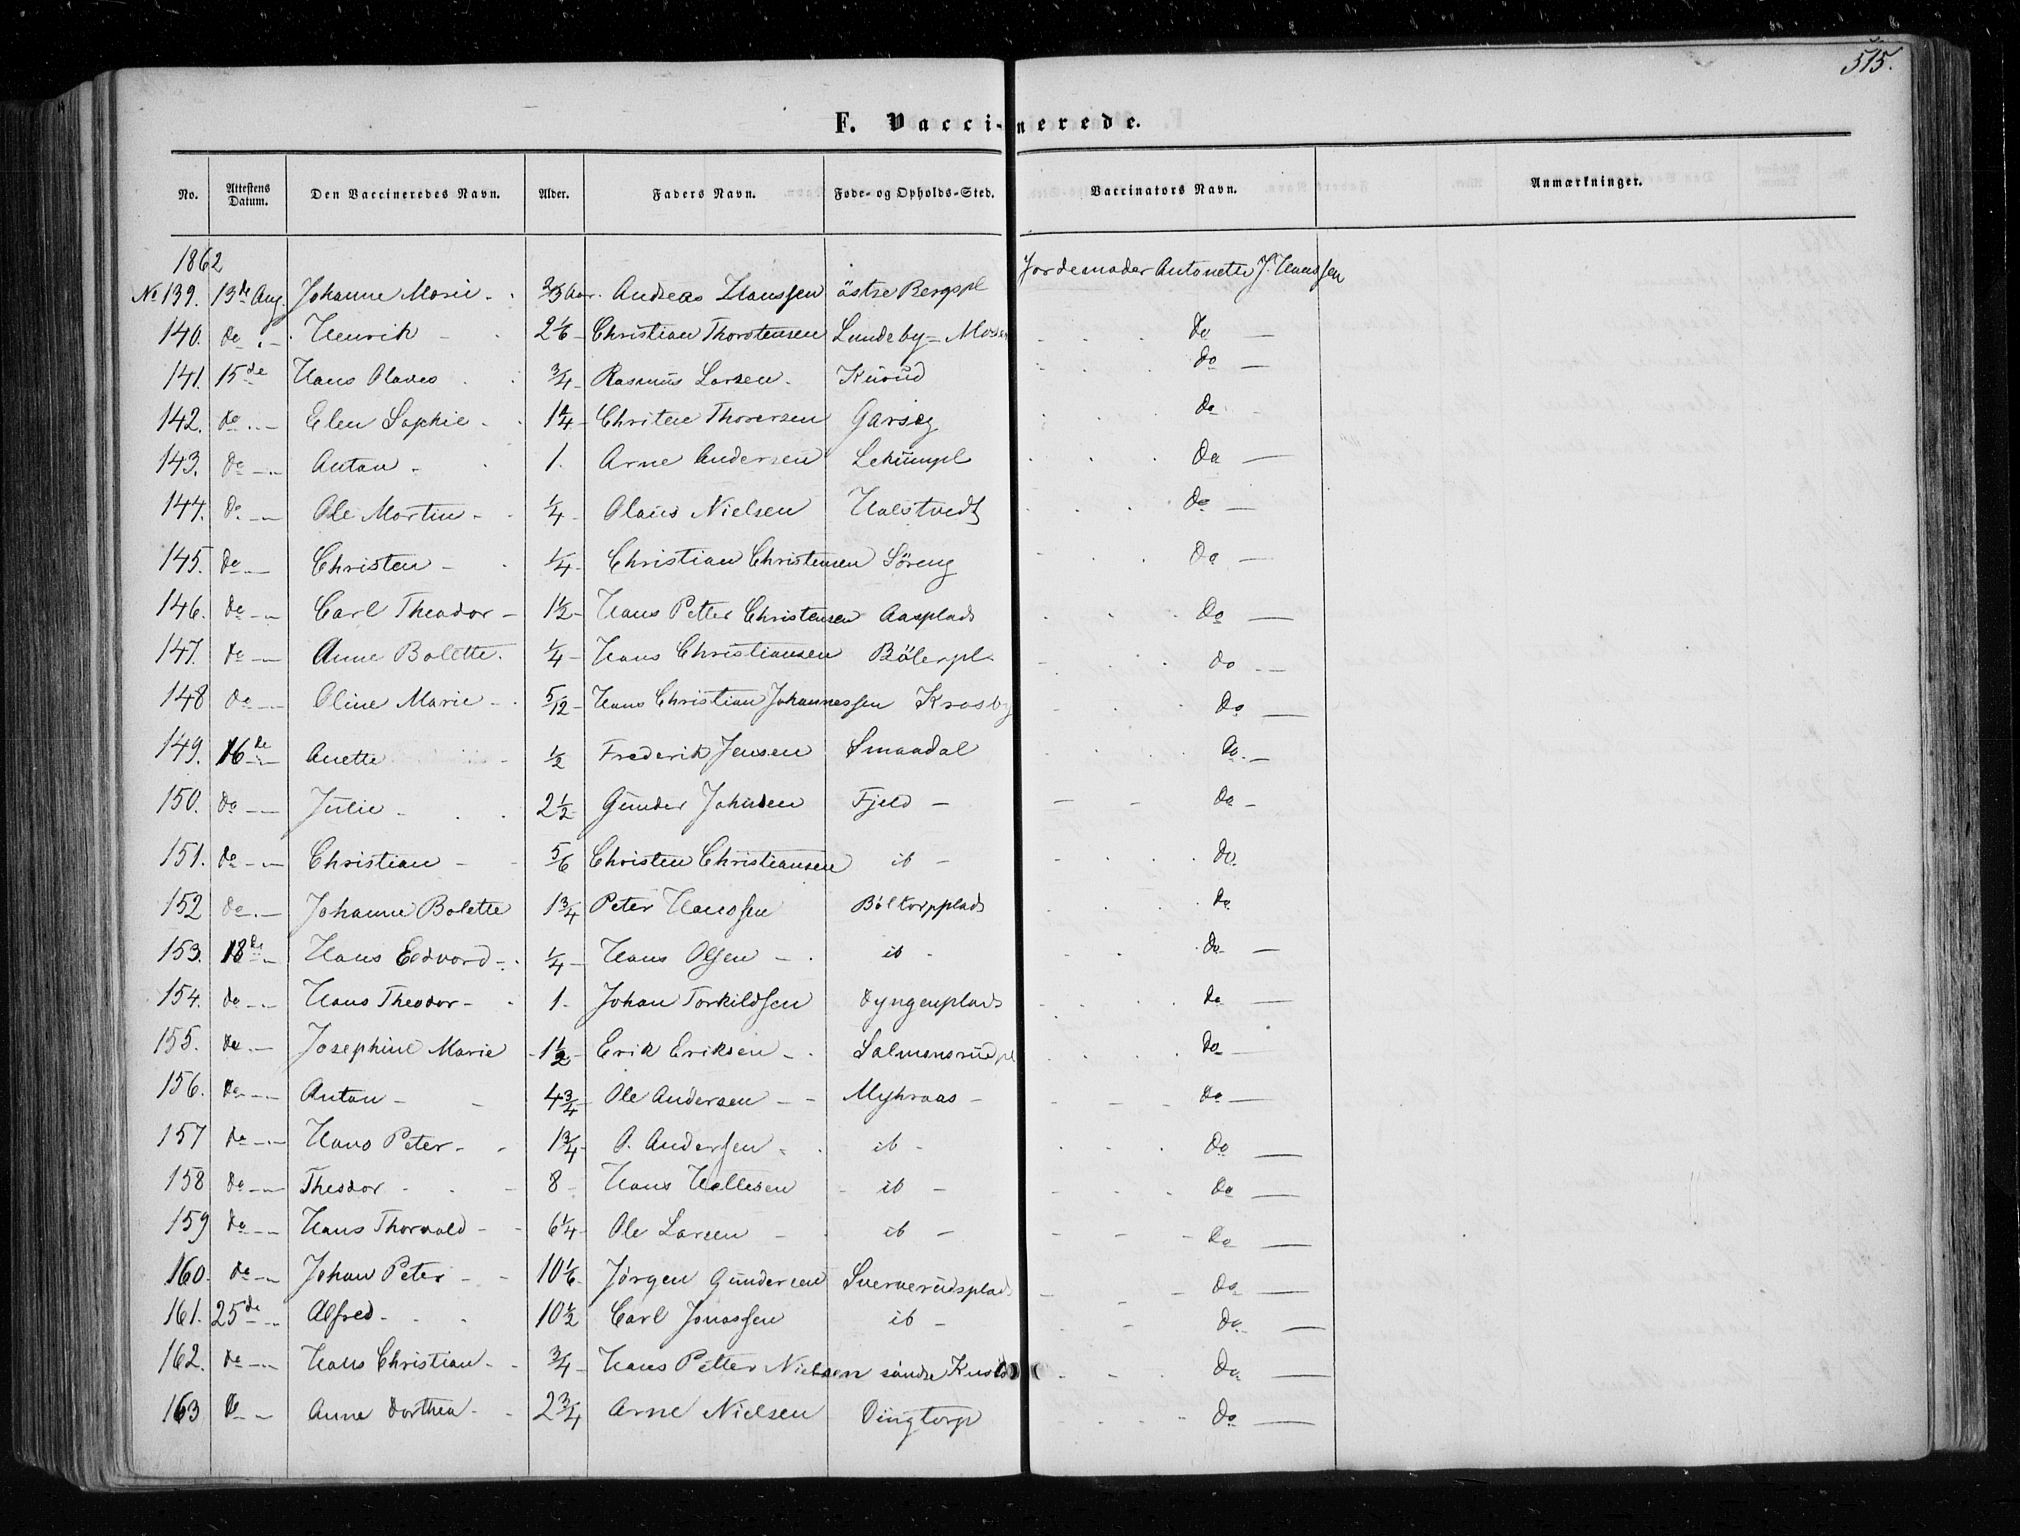 515.
F. Vaccinerede.
No. Attestens Datum. Den Vaccineredes Navn. Alder. Faders Navn. Føde- og Opholds-Sted. Vaccinators Navn. Anmærkninger.
1862
No 139. 13de Aug. Johanne Marie 2/3 Aar. Andreas Hanssen östre Bergspl Jordemoder Antonette J. Hanssen
140. do Henrik 2 1/6 Christian Thorstensen Lundeby Mosen do
141. 15de Hans Olaves 3/4 Rasmus Larsen Knörud do
142. do Elen Sophie 1 1/4 Christen Thorersen Garseg do
143. do Anton 1. Arne Andersen Lekumpl do
144. do Ole Martin 1/4 Olaus Nielsen Halstvedt do
145. do Christen 1/4 Christian Christensen Söreng do
146. do Carl Theodor 1 1/2 Hans Petter Christensen Aasplads do
147. do Anne Bolette 1/4 Hans Christiansen Bölerpl do
148 do Oline Marie 5/12 Hans Christian Johannessen Krosby do
149. 16de Anette 1/2 Frederik Jensen Smaadal do
150. do Julie 2 1/2 Gunder Johnsen Fjeld do
151. do Christian 5/6 Christen Christiansen ib do
152 do Johanne Bolette 1 3/4 Peter Hanssen Böltorpplads do
153. 18de Hans Edvard 1/4 Hans Olsen ib do
154. do Hans Theodor 1 Johan Torkildsen Dyngenplads do
155. do Josephine Marie 1 1/2 Erik Eriksen Salmonsrudpl do
156. do Anton 4 3/4 Ole Andersen Myhraas do
157 do Hans Peter 1 3/4 O. Andersen ib do
158 do Theodor 8 Hans Hallesen ib do
159 do Hans Thorvald 6 1/4 Ole Larsen ib do
160. do Johan Peter 10 1/6 Jørgen Gundersen Sververudsplads do
161. 25de Alfred 10 1/2 Carl Jonassen ib do
162. do Hans Christian 3/4 Hans Petter Nielsen söndre do
163 do Anne Dorthea 2 3/4 Arne Nielsen Dingtorp do